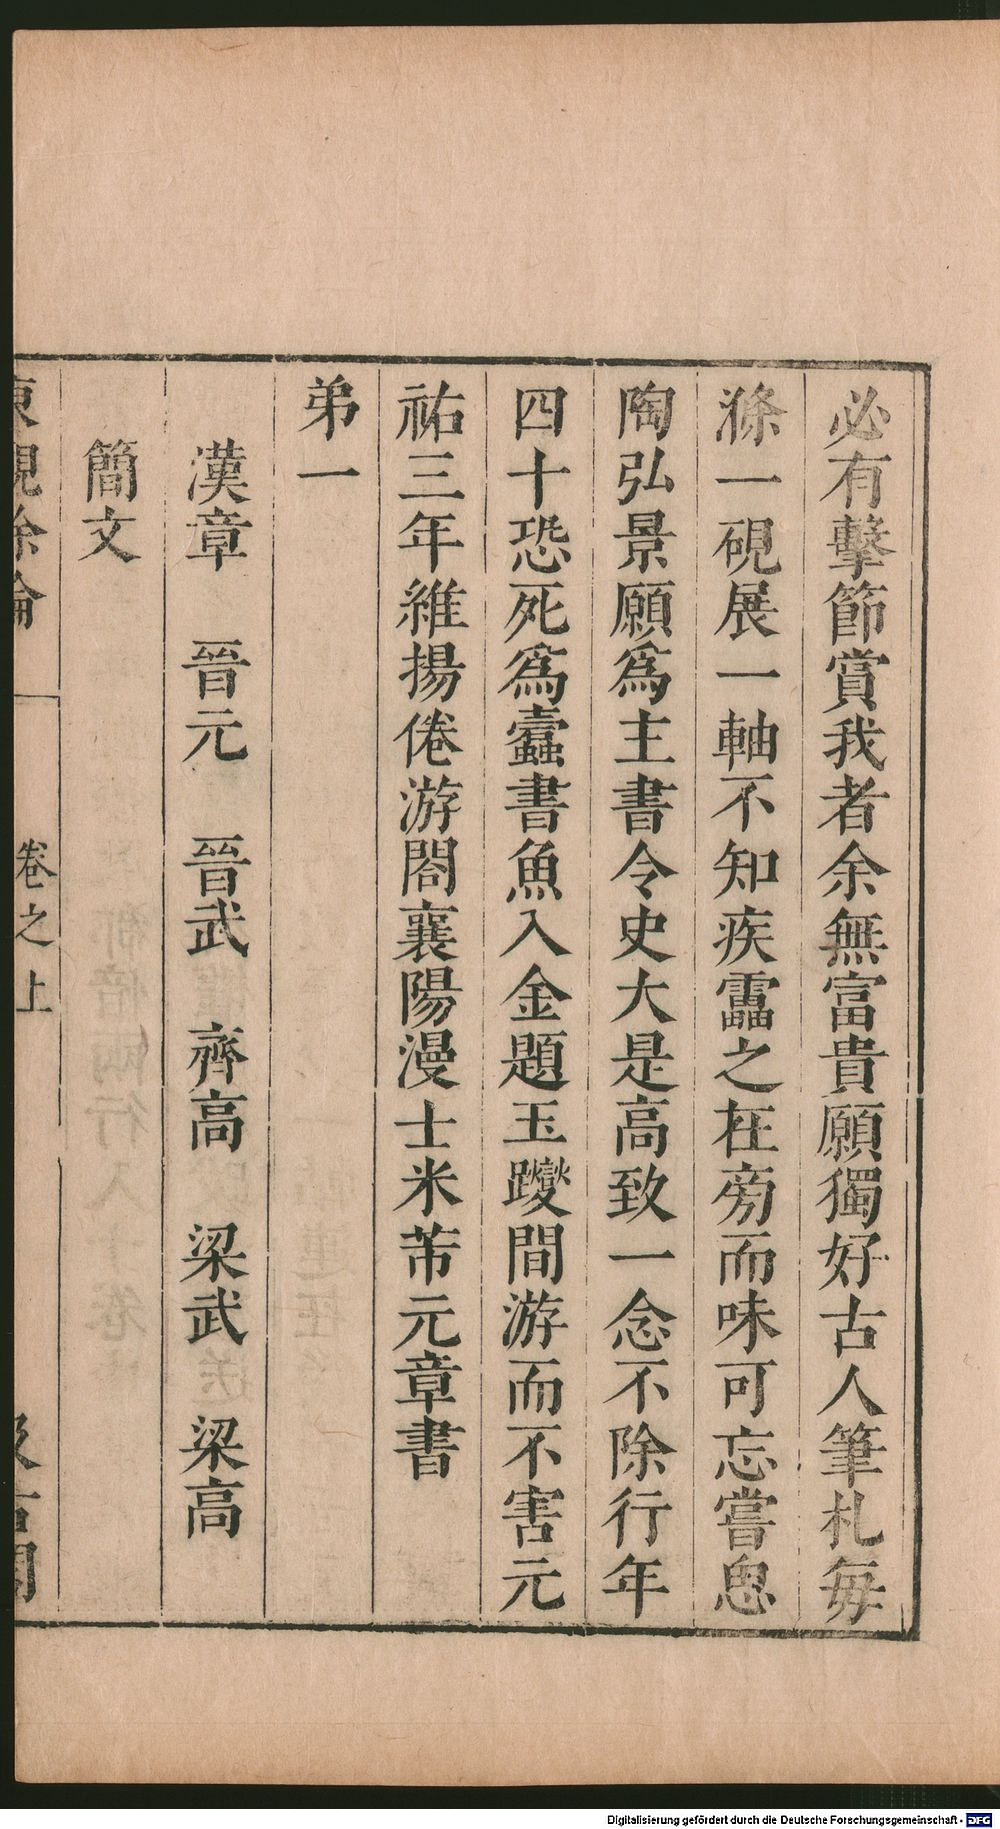 必有擊節賞我者余無富貴願獨好古人筆札每
滌一硯展一軸不知疾靁之在旁而味可忘嘗思
陶弘景願為主書令史大是高致一念不除行年
四十恐死為蠹書魚入金題玉躞間游而不害元
祐三年維揚倦游閣襄陽漫士米芾元章書
弟一
漢章 晉元 晉武 齊高 梁武 梁高
簡文
東觀餘論 卷之上 汲古閣
Digitalisierung gefördert durch die Deutsche Forschungsgemeinschaft - DFG